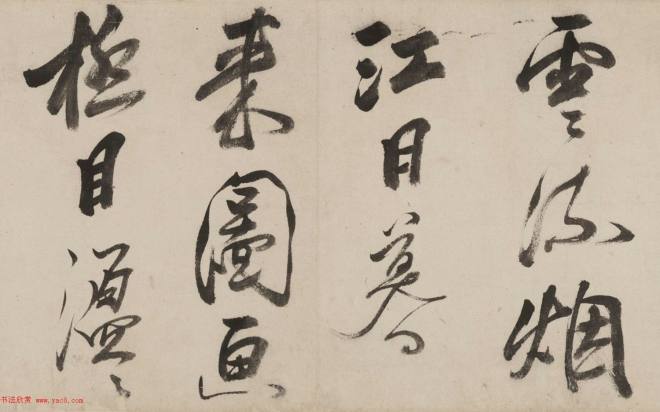 雲〻流烟
江日暮
來圖画
極目
书法欣赏 www.yac8.com